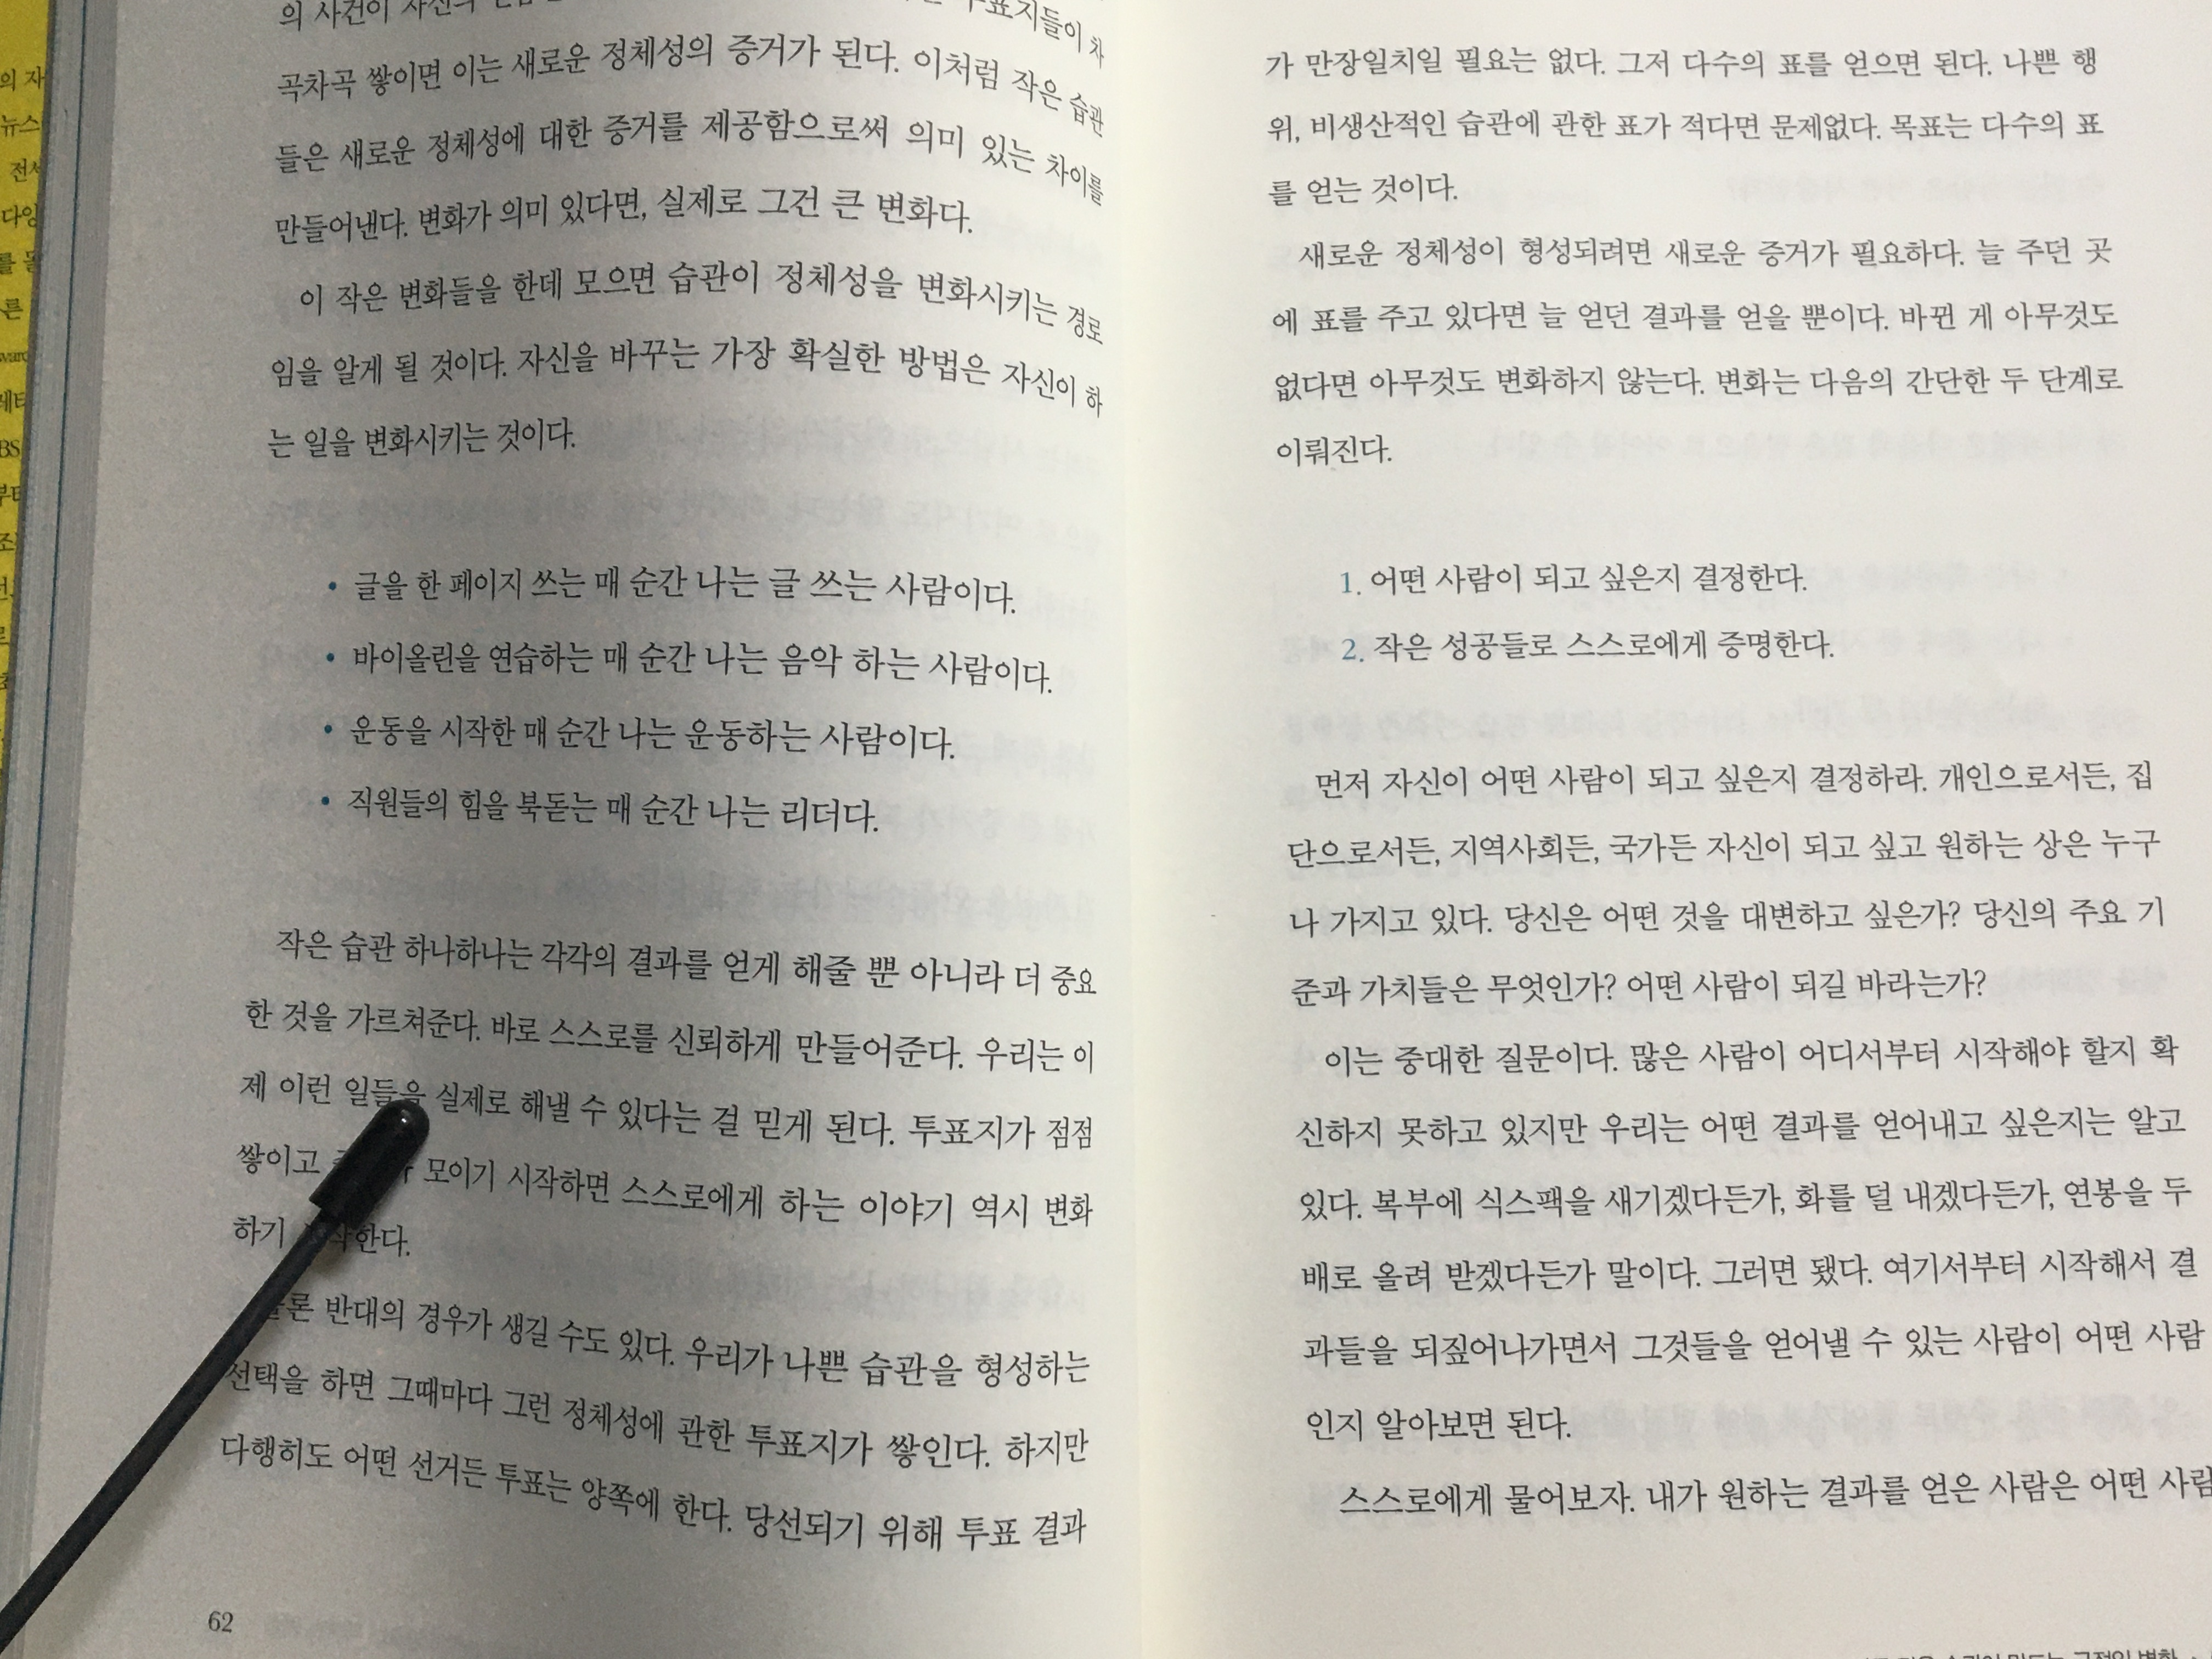 의 사건이
투표지들이 차
곡차곡 쌓이면 이는 새로운 정체성의 증거가 된다. 이처럼 작은 습관
들은 새로운 정체성에 대한 증거를 제공함으로써 의미 있는 차이를
만들어낸다. 변화가 의미 있다면, 실제로 그건 큰 변화다.
이 작은 변화들을 한데 모으면 습관이 정체성을 변화시키는 경로
임을 알게 될 것이다. 자신을 바꾸는 가장 확실한 방법은 자신이 하
는 일을 변화시키는 것이다.
• 글을 한 페이지 쓰는 매 순간 나는 글 쓰는 사람이다.
• 바이올린을 연습하는 매 순간 나는 음악 하는 사람이다.
• 운동을 시작한 매 순간 나는 운동하는 사람이다.
• 직원들의 힘을 북돋는 매 순간 나는 리더다.
작은 습관 하나하나는 각각의 결과를 얻게 해줄 뿐 아니라 더 중요
한 것을 가르쳐준다. 바로 스스로를 신뢰하게 만들어준다. 우리는 이
제 이런 일들을 실제로 해낼 수 있다는 걸 믿게 된다. 투표지가 점점
쌓이고 모이기 시작하면 스스로에게 하는 이야기 역시 변화
하기 시작한다.
물론 반대의 경우가 생길 수도 있다. 우리가 나쁜 습관을 형성하는
선택을 하면 그때마다 그런 정체성에 관한 투표지가 쌓인다. 하지만
다행히도 어떤 선거든 투표는 양쪽에 한다. 당선되기 위해 투표 결과
62
가 만장일치일 필요는 없다. 그저 다수의 표를 얻으면 된다. 나쁜 행
위, 비생산적인 습관에 관한 표가 적다면 문제없다. 목표는 다수의 표
를 얻는 것이다.
새로운 정체성이 형성되려면 새로운 증거가 필요하다. 늘 주던 곳
에 표를 주고 있다면 늘 얻던 결과를 얻을 뿐이다. 바뀐 게 아무것도
없다면 아무것도 변화하지 않는다. 변화는 다음의 간단한 두 단계로
이뤄진다.
1. 어떤 사람이 되고 싶은지 결정한다.
2. 작은 성공들로 스스로에게 증명한다.
먼저 자신이 어떤 사람이 되고 싶은지 결정하라. 개인으로서든, 집
단으로서든, 지역사회든, 국가든 자신이 되고 싶고 원하는 상은 누구
나 가지고 있다. 당신은 어떤 것을 대변하고 싶은가? 당신의 주요 기
준과 가치들은 무엇인가? 어떤 사람이 되길 바라는가?
이는 중대한 질문이다. 많은 사람이 어디서부터 시작해야 할지 확
신하지 못하고 있지만 우리는 어떤 결과를 얻어내고 싶은지는 알고
있다. 복부에 식스팩을 새기겠다든가, 화를 덜 내겠다든가, 연봉을 두
배로 올려 받겠다든가 말이다. 그러면 됐다. 여기서부터 시작해서 결
과들을 되짚어나가면서 그것들을 얻어낼 수 있는 사람이 어떤 사람
인지 알아보면 된다.
스스로에게 물어보자. 내가 원하는 결과를 얻은 사람은 어떤 사람